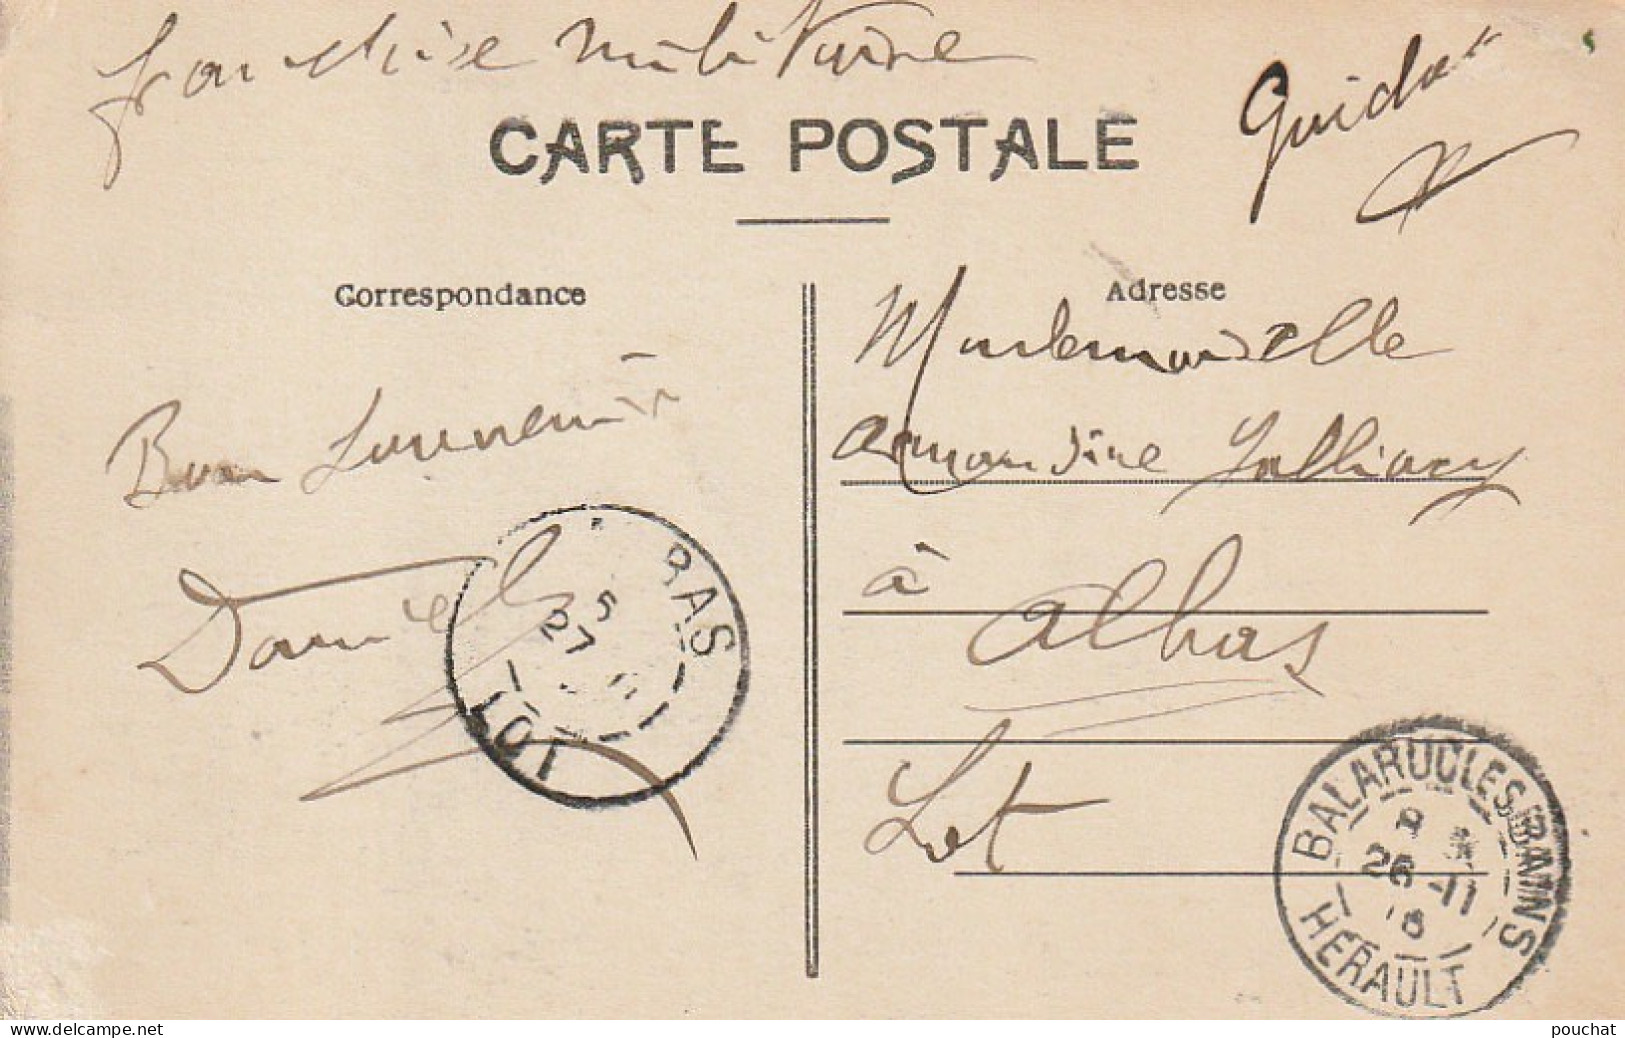 franchise militaire
Guidat
CARTE POSTALE
Correspondance
Adresse
Bon Souvenir
Daniel
Mademoiselle
Armandine
à
Albas
Lot
BAS
5
27
LOT
BALARUC LES BAINS
26 -11
HERAULT
www.delcampe.net
pouchat